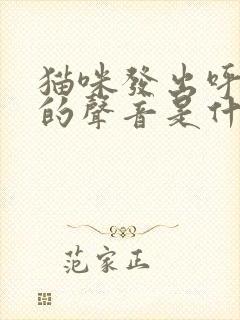 猫咪發出呼
的聲音是什
范家正